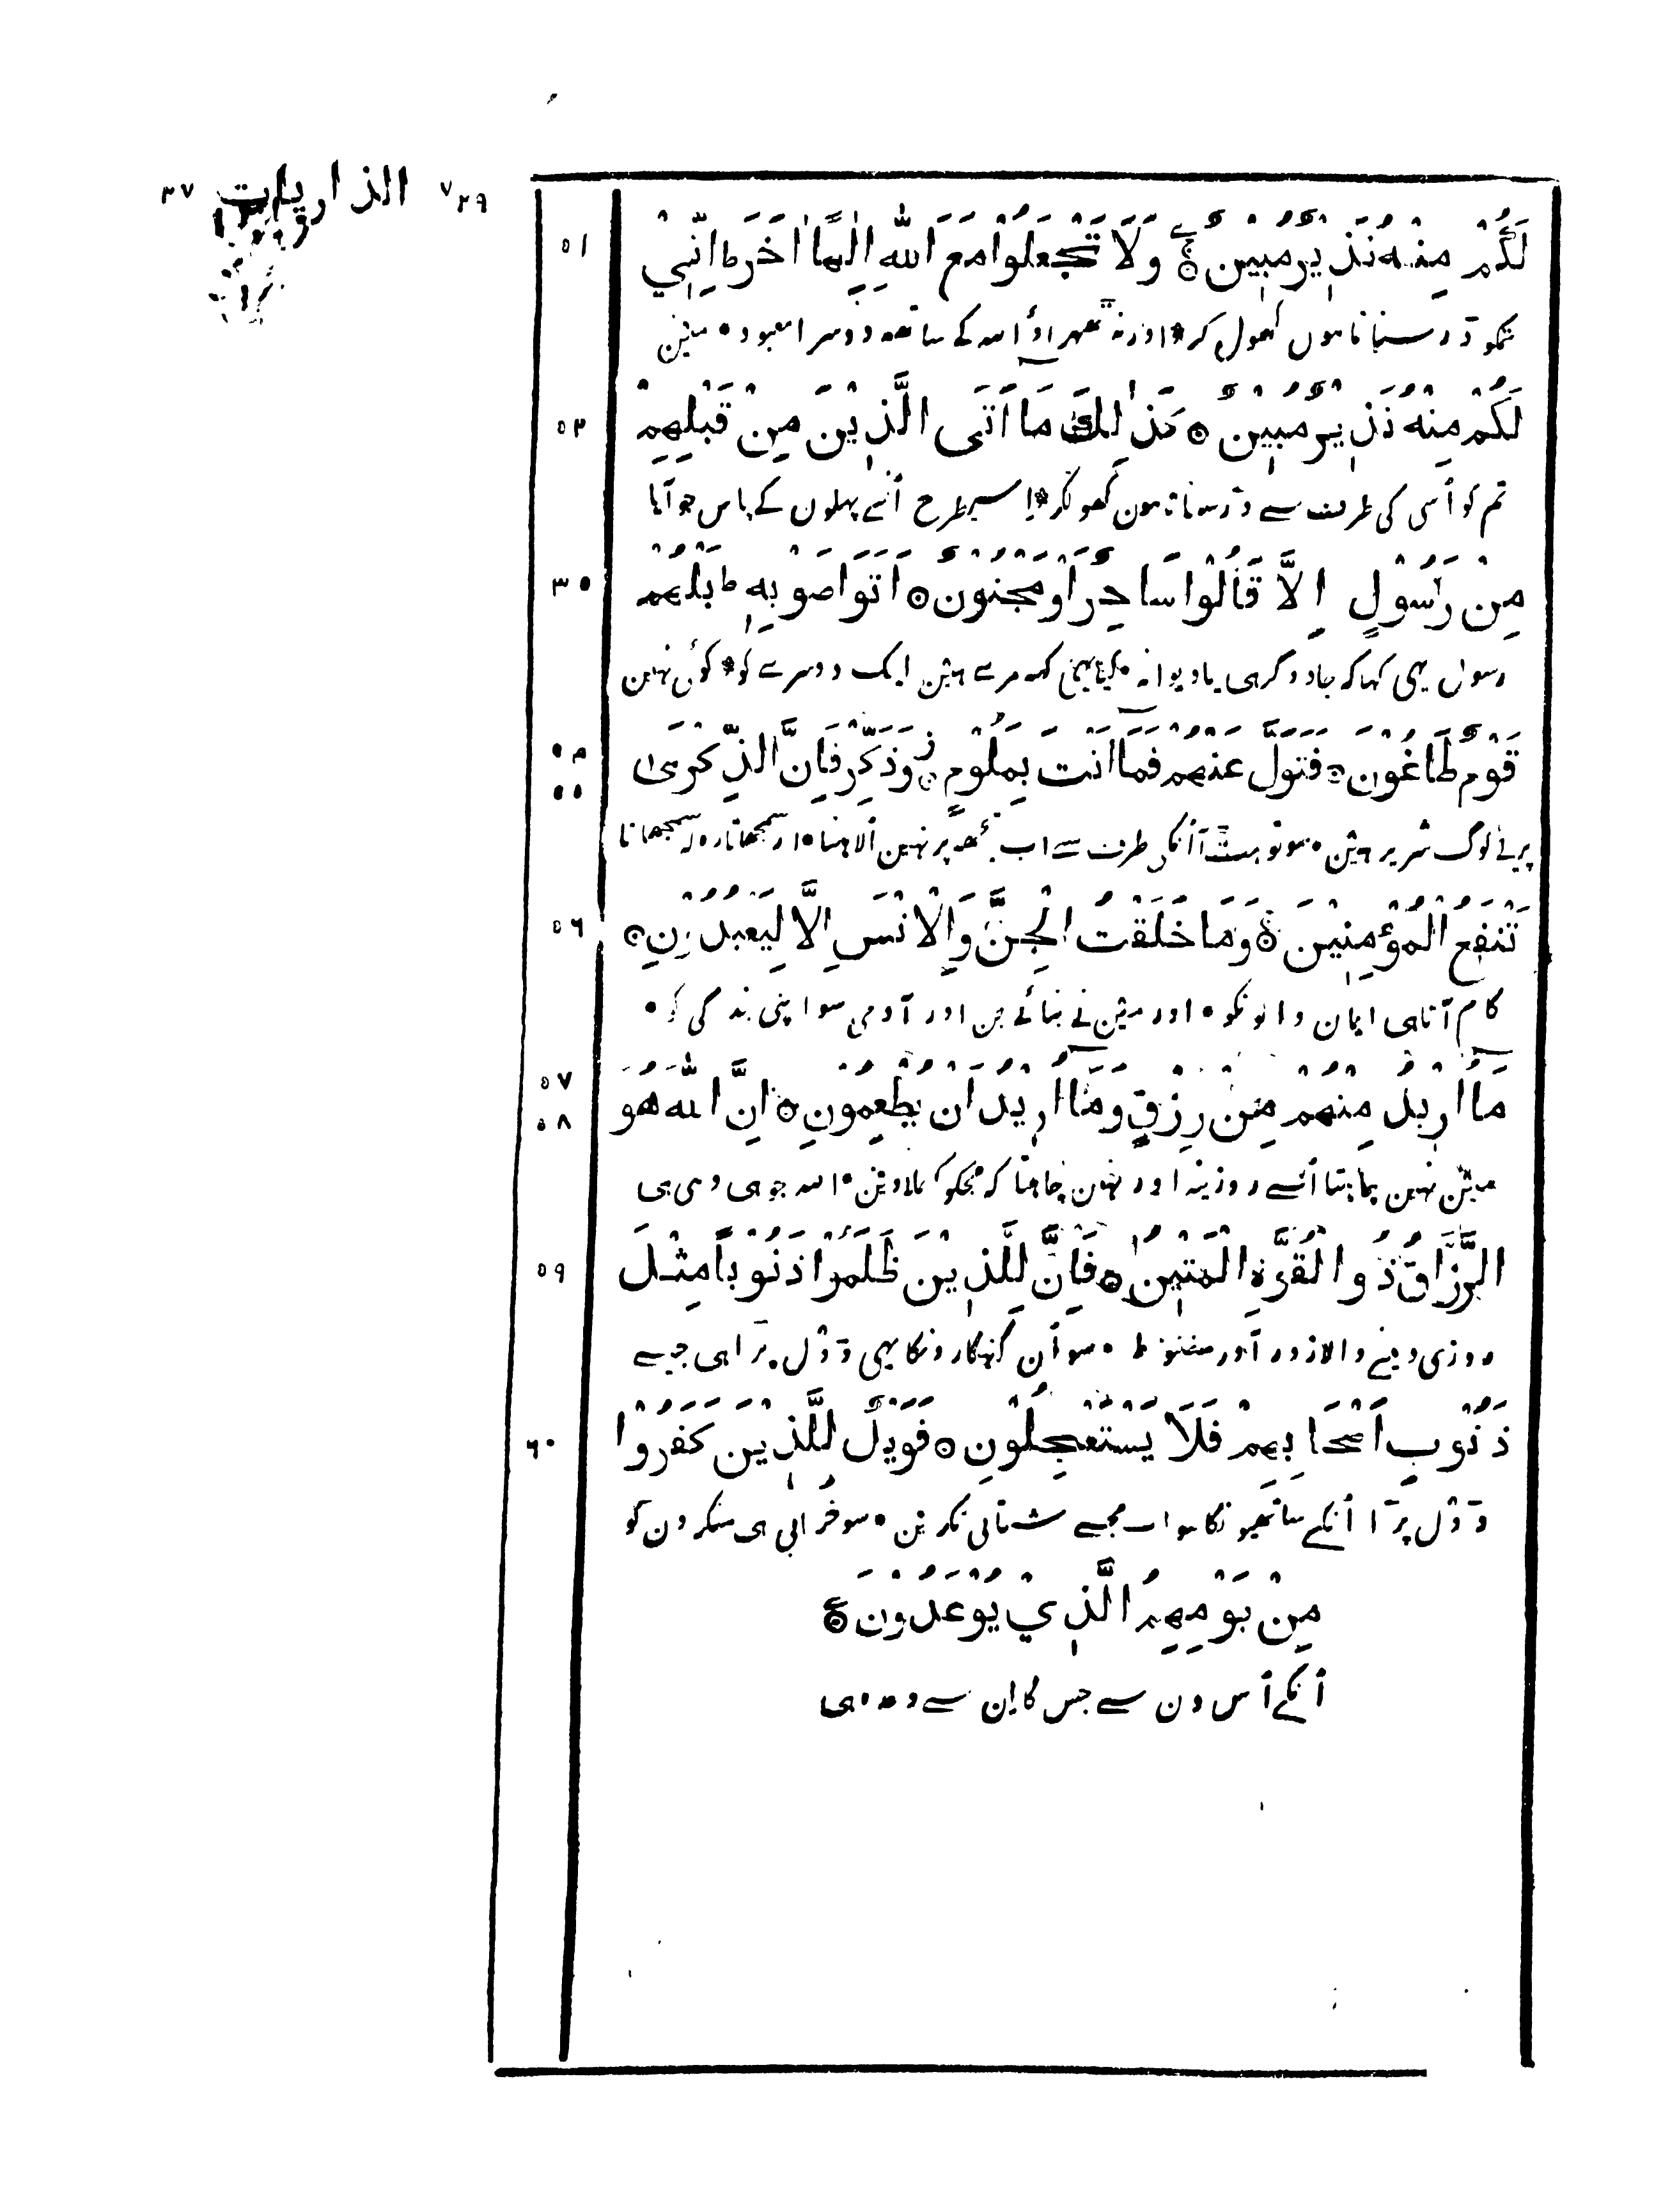 ٧٢٩ الذاريات ٢٧
لَكُمْ مِنْهُ نَذِيرٌ مُبِيْنٌ وَلَا تَجْعَلُوْا مَعَ اللّٰهِ اِلٰهًا اٰخَرَ ط اِنِّيْ ٥١
تمکو ڈر سناتا ہوں کھول کر * اور نہ ٹھہراؤ اللہ کے ساتھ دوسرا معبود • مین
لَكُمْ مِنْهُ نَذِيْرٌ مُبِيْنٌ ۞ كَذٰلِكَ مَا اَتَى الَّذِيْنَ مِنْ قَبْلِهِمْ ٥٢
تم کو اُسی کی طرف سے ڈر سناتا ہون کھولکر * اِسیطرح اُنسے پہلوں کے پاس جو آیا
مِنْ رَسُوْلٍ اِلَّا قَالُوْا سَاحِرٌ اَوْ مَجْنُوْنٌ ۞ اَتَوَاصَوْ بِهٖ ط بَلْ هُمْ ٥٣
رسول یہی کہا کہ جادوگر ہی یا دیوانہ • کیا یہی کہہ مرے ہین ایک دوسرے کو * کوئی نہین
قَوْمٌ طَاغُوْنَ ۞ فَتَوَلَّ عَنْهُمْ فَمَا اَنْتَ بِمَلُوْمٍ ۞ وَذَكِّرْ فَاِنَّ الذِّكْرٰى ٥٤ ٥٥
پر یے لوگ شریر ہین • سو تو ہٹ آ اُنکی طرف سے اب تجھہ پر نہین اُلاہنا • اور سمجھاتا رہ کہ سمجھانا
تَنْفَعُ الْمُؤْمِنِيْنَ ۞ وَمَا خَلَقْتُ الْجِنَّ وَالْاِنْسَ اِلَّا لِيَعْبُدُوْنِ ۞ ٥٦
کام آتا ہی ایمان والونکو • اور مین نے بنائے جن اور آدمی سو اپنی بندگی کو •
مَا اُرِيْدُ مِنْهُمْ مِنْ رِزْقٍ وَمَا اُرِيْدُ اَنْ يُطْعِمُوْنِ ۞ اِنَّ اللّٰهَ هُوَ ٥٧ ٥٨
مین نہین چاہتا اُنسے روزینہ اور نہین چاہتا کہ مجکو کھلاوین • اللہ جو ہی وہی ہی
الرَّزَّاقُ ذُو الْقُوَّةِ الْمَتِيْنُ ۞ فَاِنَّ لِلَّذِيْنَ ظَلَمُوْا ذَنُوْبًا مِثْلَ ٥٩
روزی دینے والا زورآور مضبوط • سو اُن گنہگارونکا بہی ڈول بھرا ہی جیسے
ذَنُوْبِ اَصْحَابِهِمْ فَلَا يَسْتَعْجِلُوْنِ ۞ فَوَيْلٌ لِلَّذِيْنَ كَفَرُوْا ٦٠
ڈول بھرا اُنکے ساتھیونکا سو اب مجسے شتابی نکرین • سو خرابی ہی منکرون کو
مِنْ يَوْمِهِمُ الَّذِيْ يُوْعَدُوْنَ
اُنکے اُس دن سے جس کا اِن سے وعدہ ہی